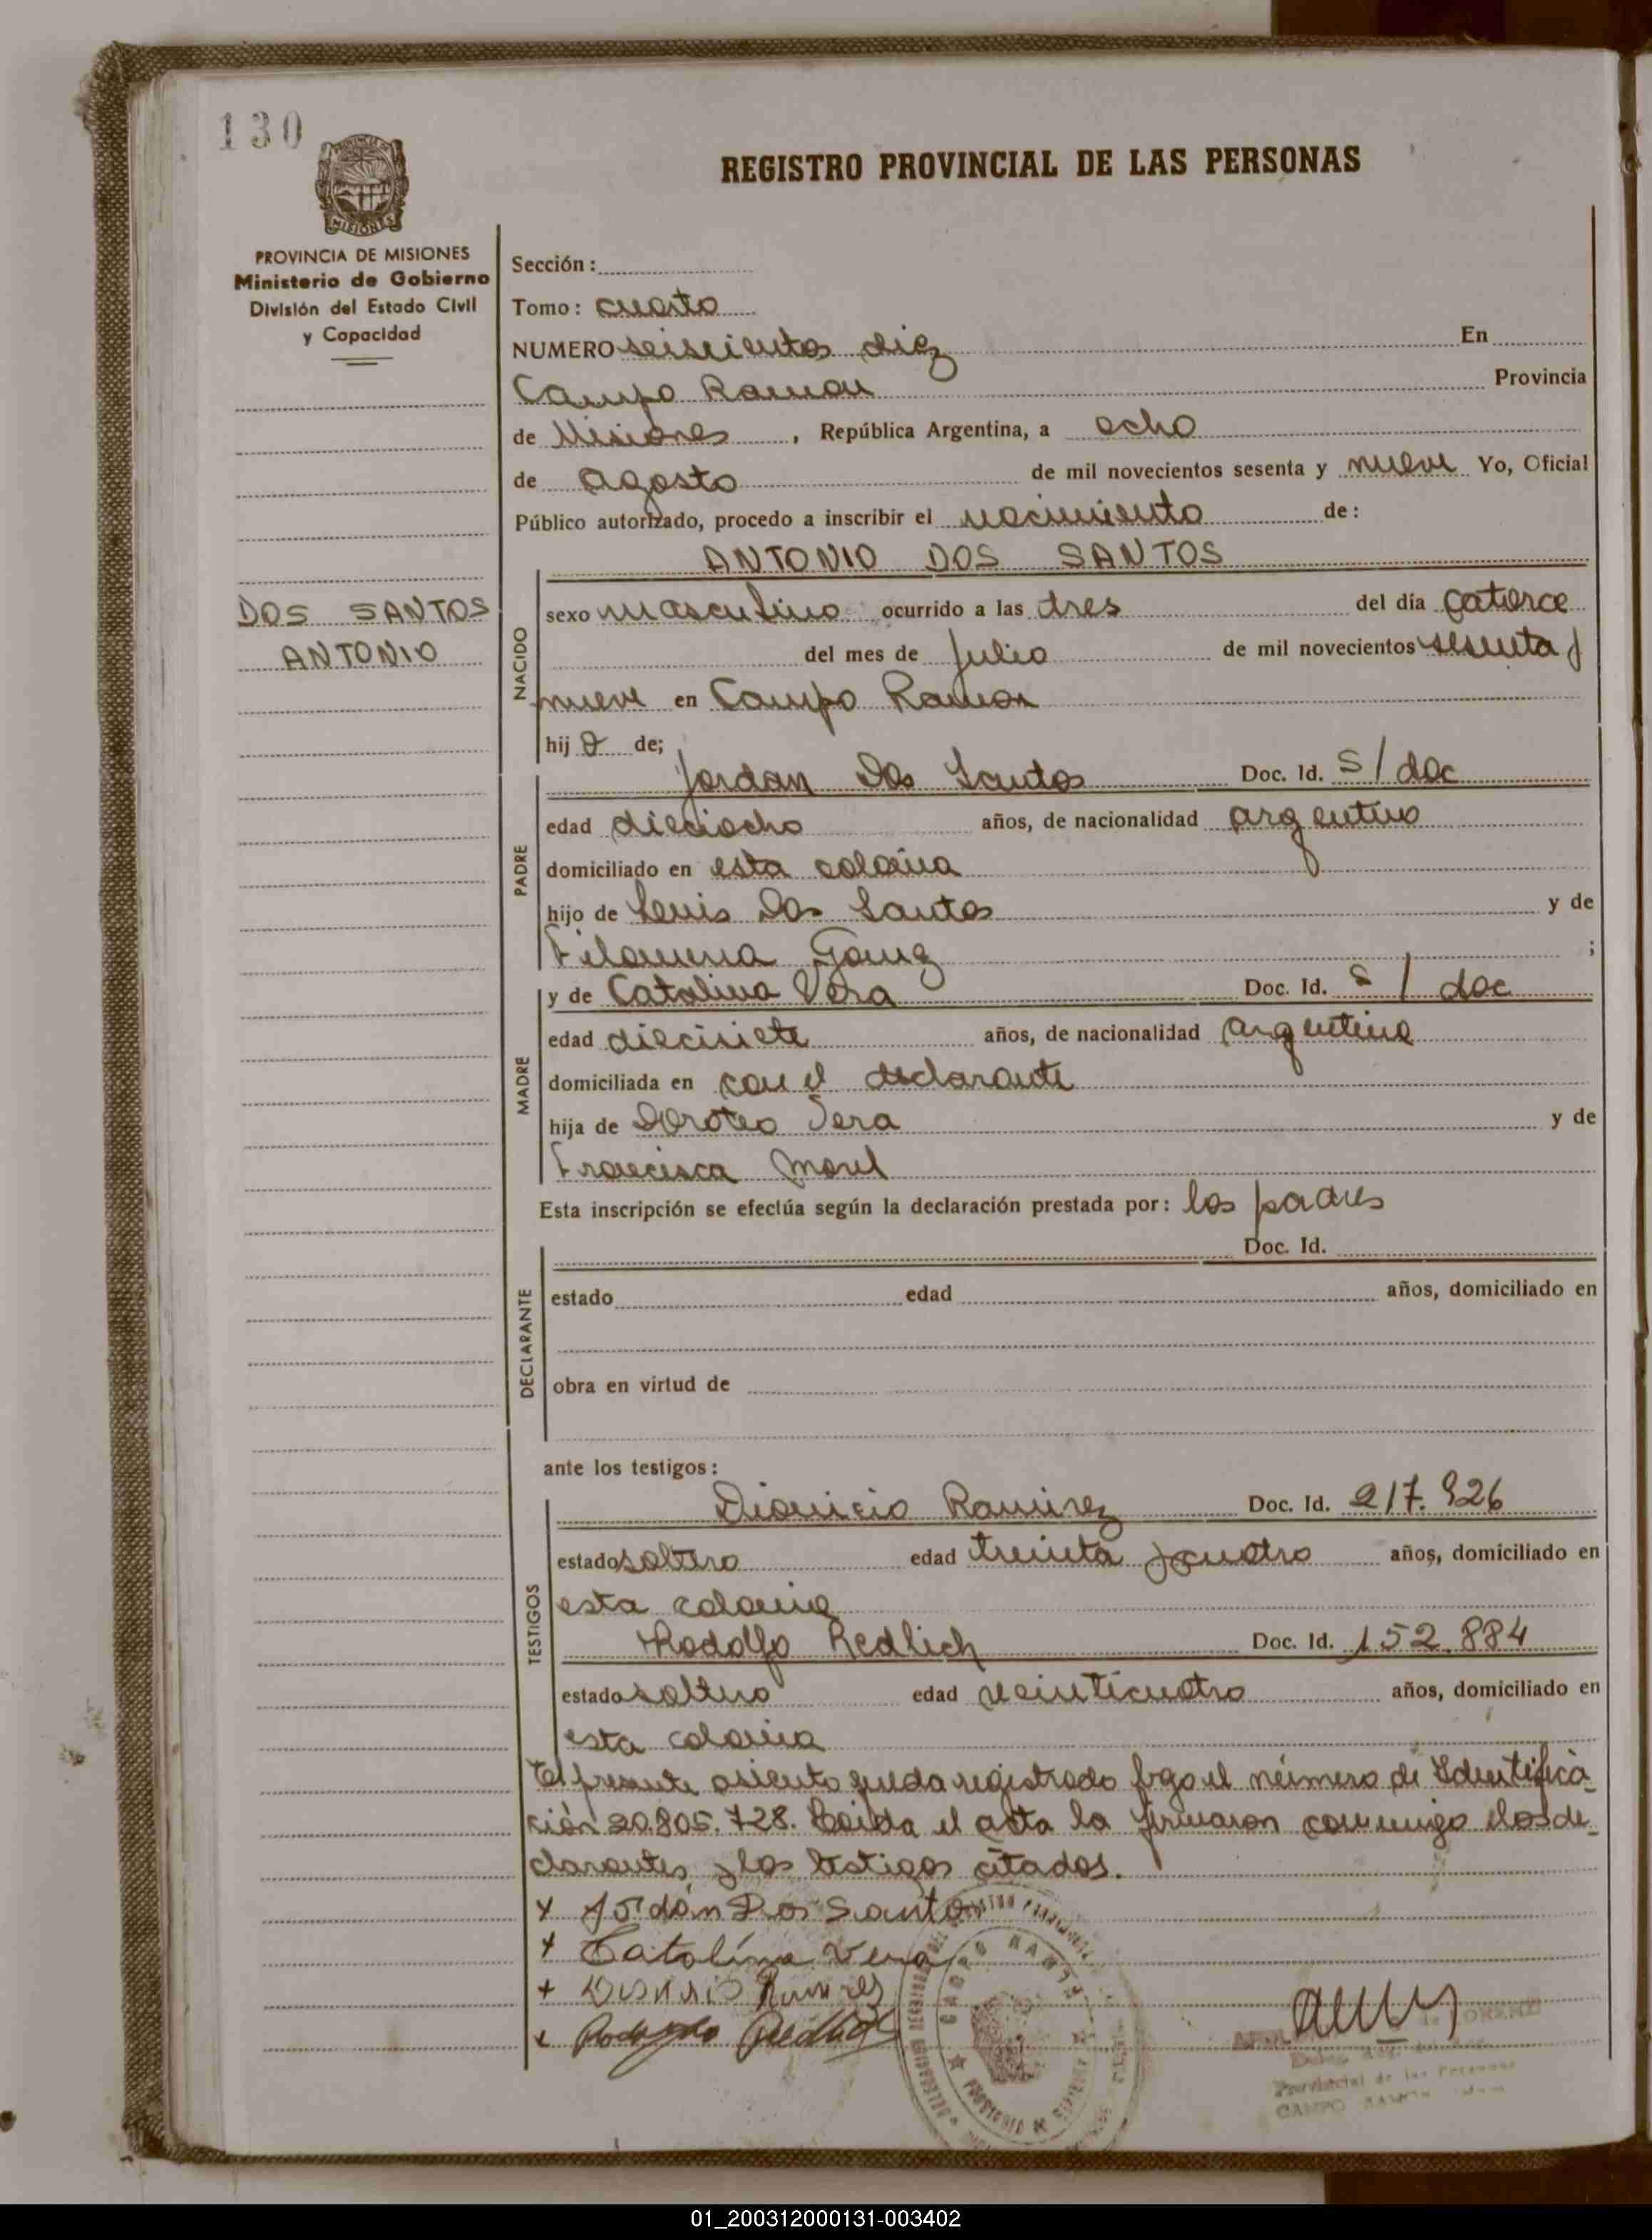 130
MISIONES
REGISTRO PROVINCIAL DE LAS PERSONAS
PROVINCIA DE MISIONES
Ministerio de Gobierno
División del Estado Civil
y Capacidad
DOS SANTOS
ANTONIO
Sección:
Tomo: cuarto
NUMERO seiscientos diez En
Campo Ramon Provincia
de Misiones, República Argentina, a ocho
de agosto de mil novecientos sesenta y nueve Yo, Oficial
Público autorizado, procedo a inscribir el nacimiento de:
ANTONIO DOS SANTOS
NACIDO
sexo masculino ocurrido a las tres del día catorce
del mes de Julio de mil novecientos sesenta y
nueve en Campo Ramon
hij o de;
PADRE
Jordan Dos Santos Doc. Id. S/doc
edad dieciocho años, de nacionalidad argentino
domiciliado en esta colonia
hijo de Luis Dos Santos y de
Filomena Gomez ;
MADRE
y de Catalina Vera Doc. Id. S/doc
edad diecisiete años, de nacionalidad argentina
domiciliada en con el declarante
hija de Doroteo Vera y de
Francisca Morel
Esta inscripción se efectúa según la declaración prestada por: los padres
DECLARANTE
Doc. Id.
estado edad años, domiciliado en
obra en virtud de
ante los testigos:
TESTIGOS
Dionicio Ramirez Doc. Id. 217.926
estado soltero edad treinta y cuatro años, domiciliado en
esta colonia
Rodolfo Redlich Doc. Id. 152.884
estado soltero edad veinticuatro años, domiciliado en
esta colonia
El presente asiento queda registrado bajo el número de Identifica-
ción 20.805.728. Leida el acta la firmaron conmigo los de-
clarantes y los testigos citados.
x Jordán Dos Santos
x Catalína Vera
+
x
CAMPO RAMON
Provincial de las Personas
CAMPO RAMON
01_200312000131-003402